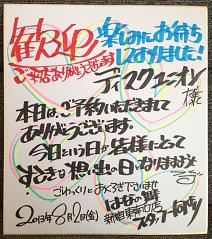 歓迎
ご来店ありがとうございます
楽しみにお待ち
しておりました！
ディスクユニオン
様
本日は、ご予約いただきまして
ありがとうございます。
今日という日が皆様にとって
すてきな想い出の日となりますように
ごゆっくりとおくつろぎ下さいませ
はなの舞
新宿東南口店
スタッフ一同より
2013年8月2日(金)